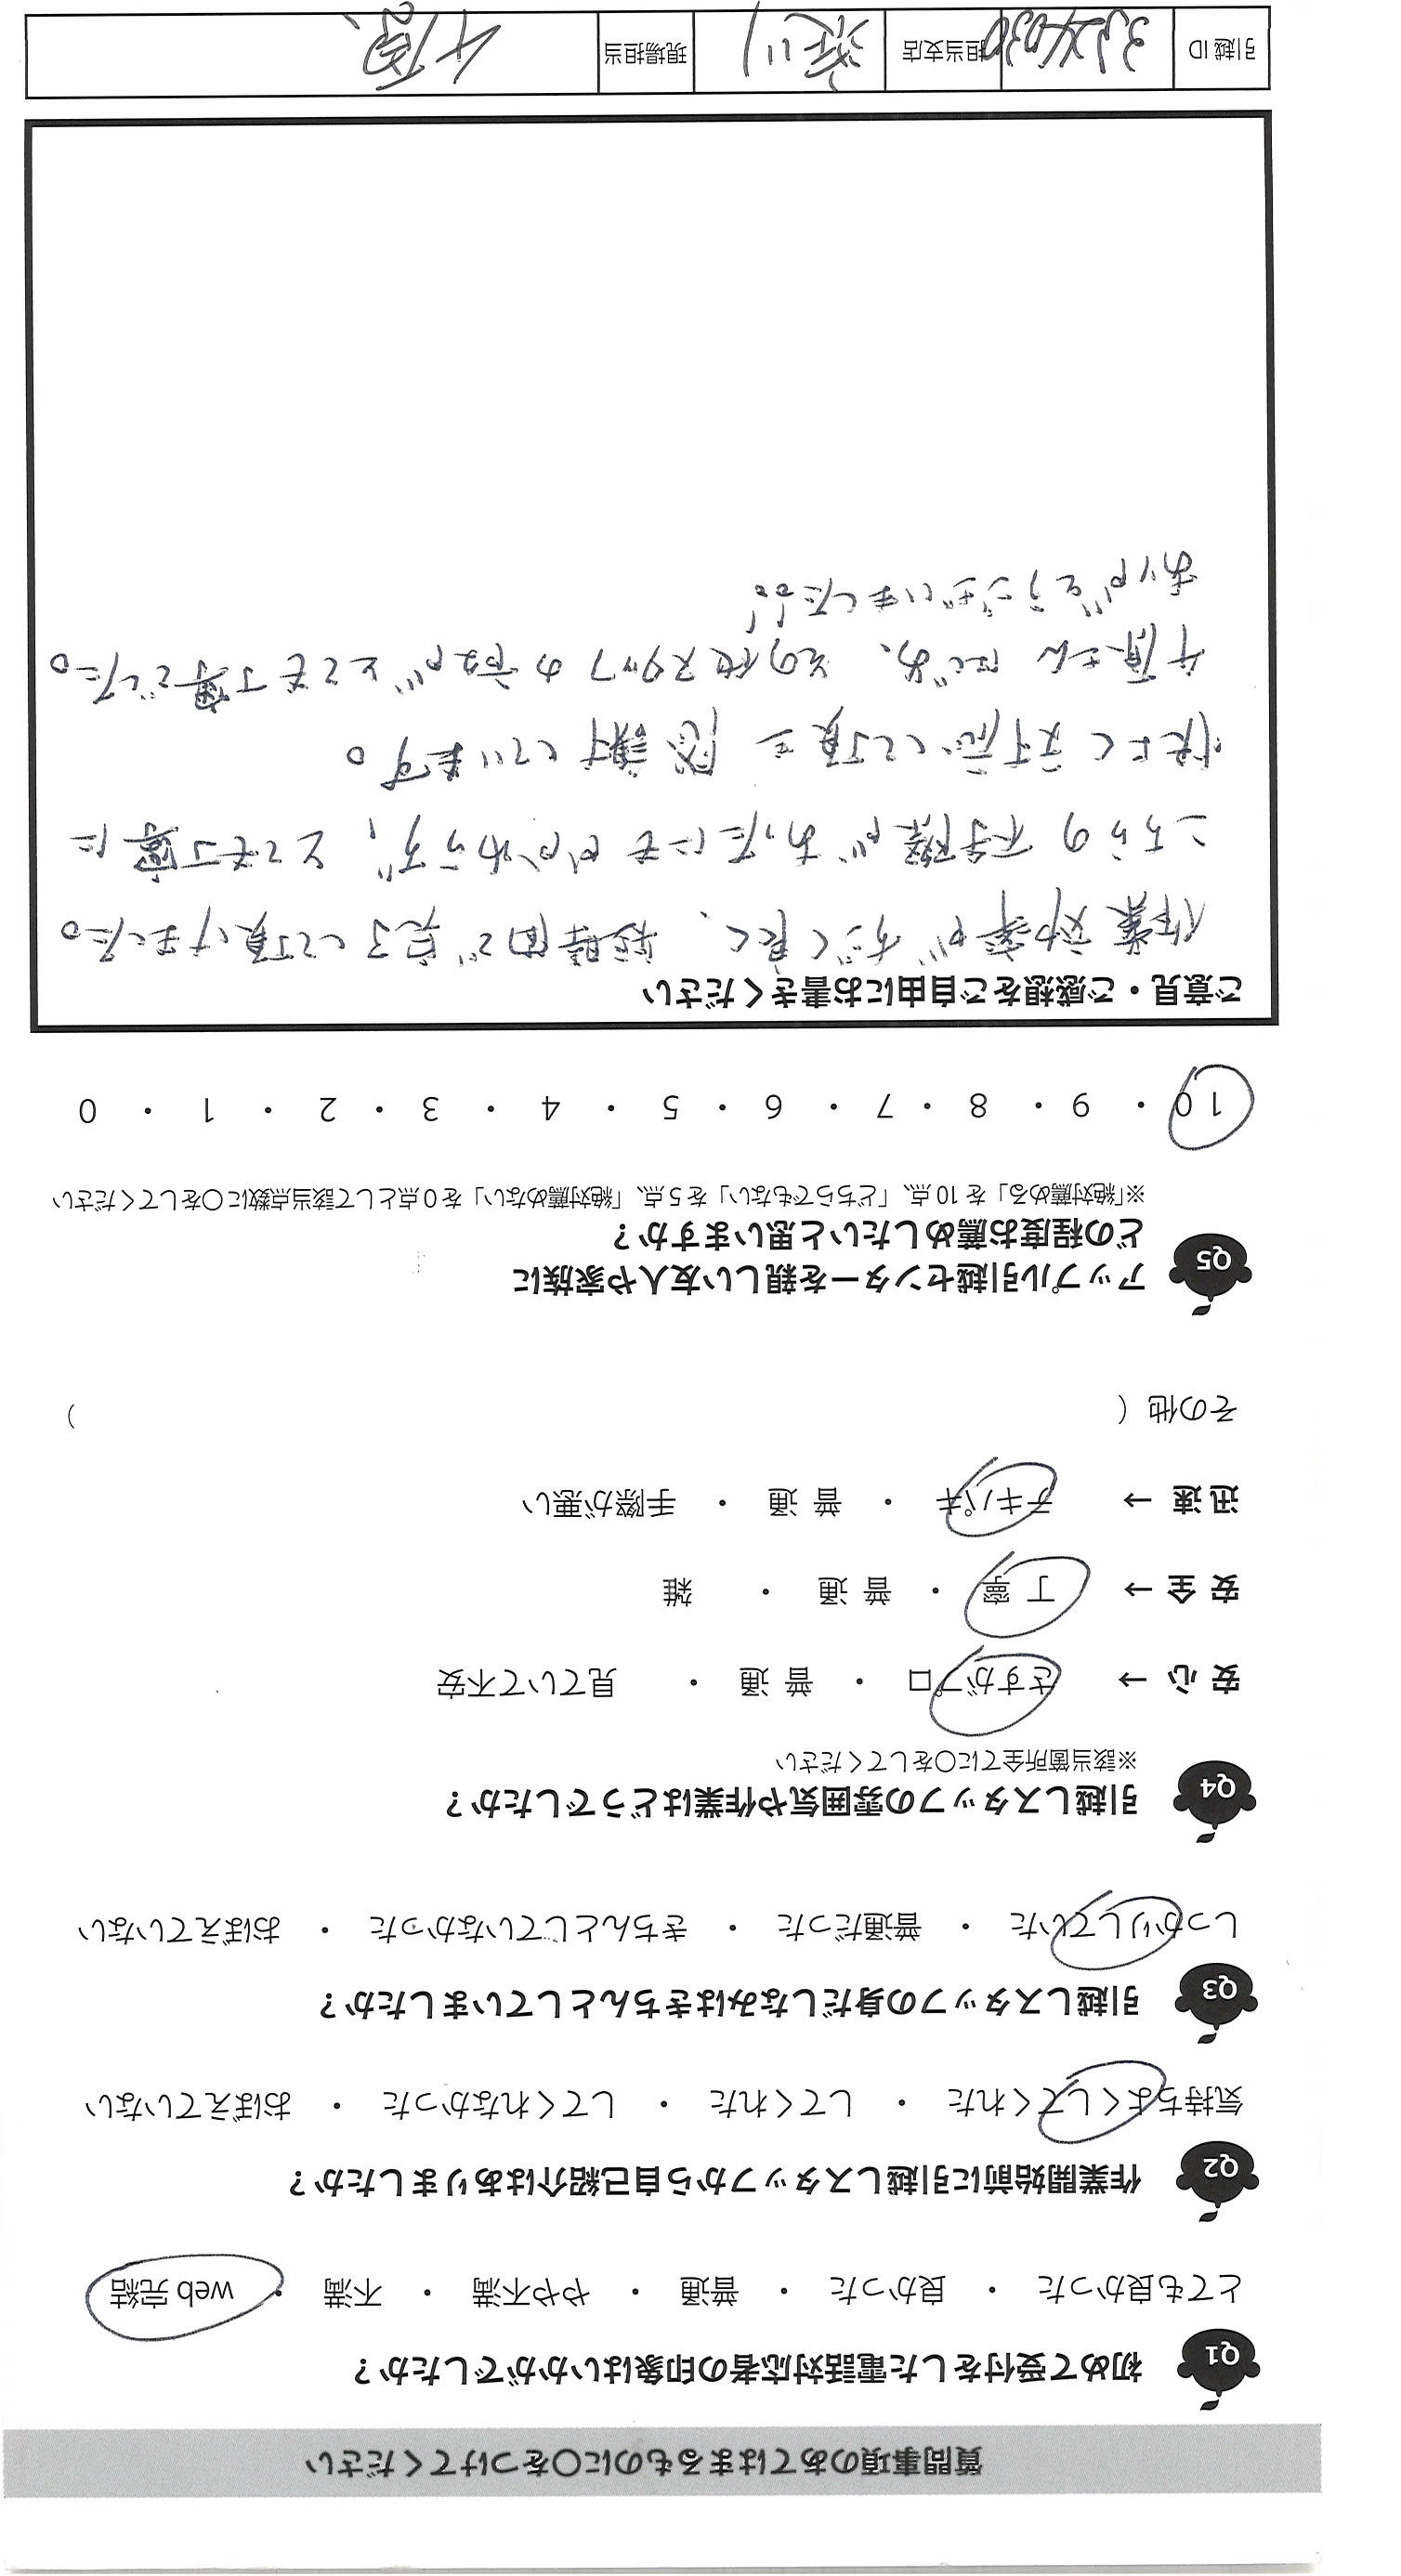 質問事項のあてはまるものに〇をつけてください
Q1 初めて受付をした電話対応者の印象はいかがでしたか？
とても良かった ・ 良かった ・ 普通 ・ やや不満 ・ 不満 ・ web 完結
Q2 作業開始前に引越しスタッフから自己紹介はありましたか？
気持ちよくしてくれた ・ してくれた ・ してくれなかった ・ おぼえていない
Q3 引越しスタッフの身だしなみはきちんとしていましたか？
しっかりしていた ・ 普通だった ・ きちんとしていなかった ・ おぼえていない
Q4 引越しスタッフの雰囲気や作業はどうでしたか？
※該当箇所全てに〇をしてください
安 心 → さすがプロ ・ 普 通 ・ 見ていて不安
安 全 → 丁 寧 ・ 普 通 ・ 雑
迅 速 → テキパキ ・ 普 通 ・ 手際が悪い
その他（ ）
Q5 アップル引越センターを親しい友人や家族に
どの程度お薦めしたいと思いますか？
※「絶対薦める」を 10 点、「どちらでもない」を 5 点、「絶対薦めない」を 0 点として該当点数に〇をしてください
10 ・ 9 ・ 8 ・ 7 ・ 6 ・ 5 ・ 4 ・ 3 ・ 2 ・ 1 ・ 0
ご意見・ご感想をご自由にお書きください
作業効率がすごく良く、短時間で完了して頂けました。
こちらの不手際があったにもかかわらず、とても丁寧に
快よく対応して頂き感謝しています。
さん はじめ、その他スタッフの方々がとても丁寧でした。
ありがとうございました!!
引越 ID 担当支店 現場担当